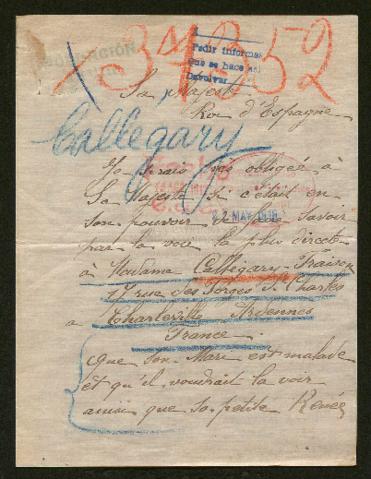 34252
Pedir informes
Que se hace así
Devolver
Sa Majesté
Roi d'Espagne
Callegary
Je serais très obligée à
Sa Majesté si c'était en
son pouvoir de faire savoir
22 MAY 1916
par la voie la plus directe
a Madame Callegary-Fraison
rue des Forges St Charles
a Charleville Ardennes
France
que son Mari est malade
et qu'il voudrait la voir
ainsi que sa petite Renée